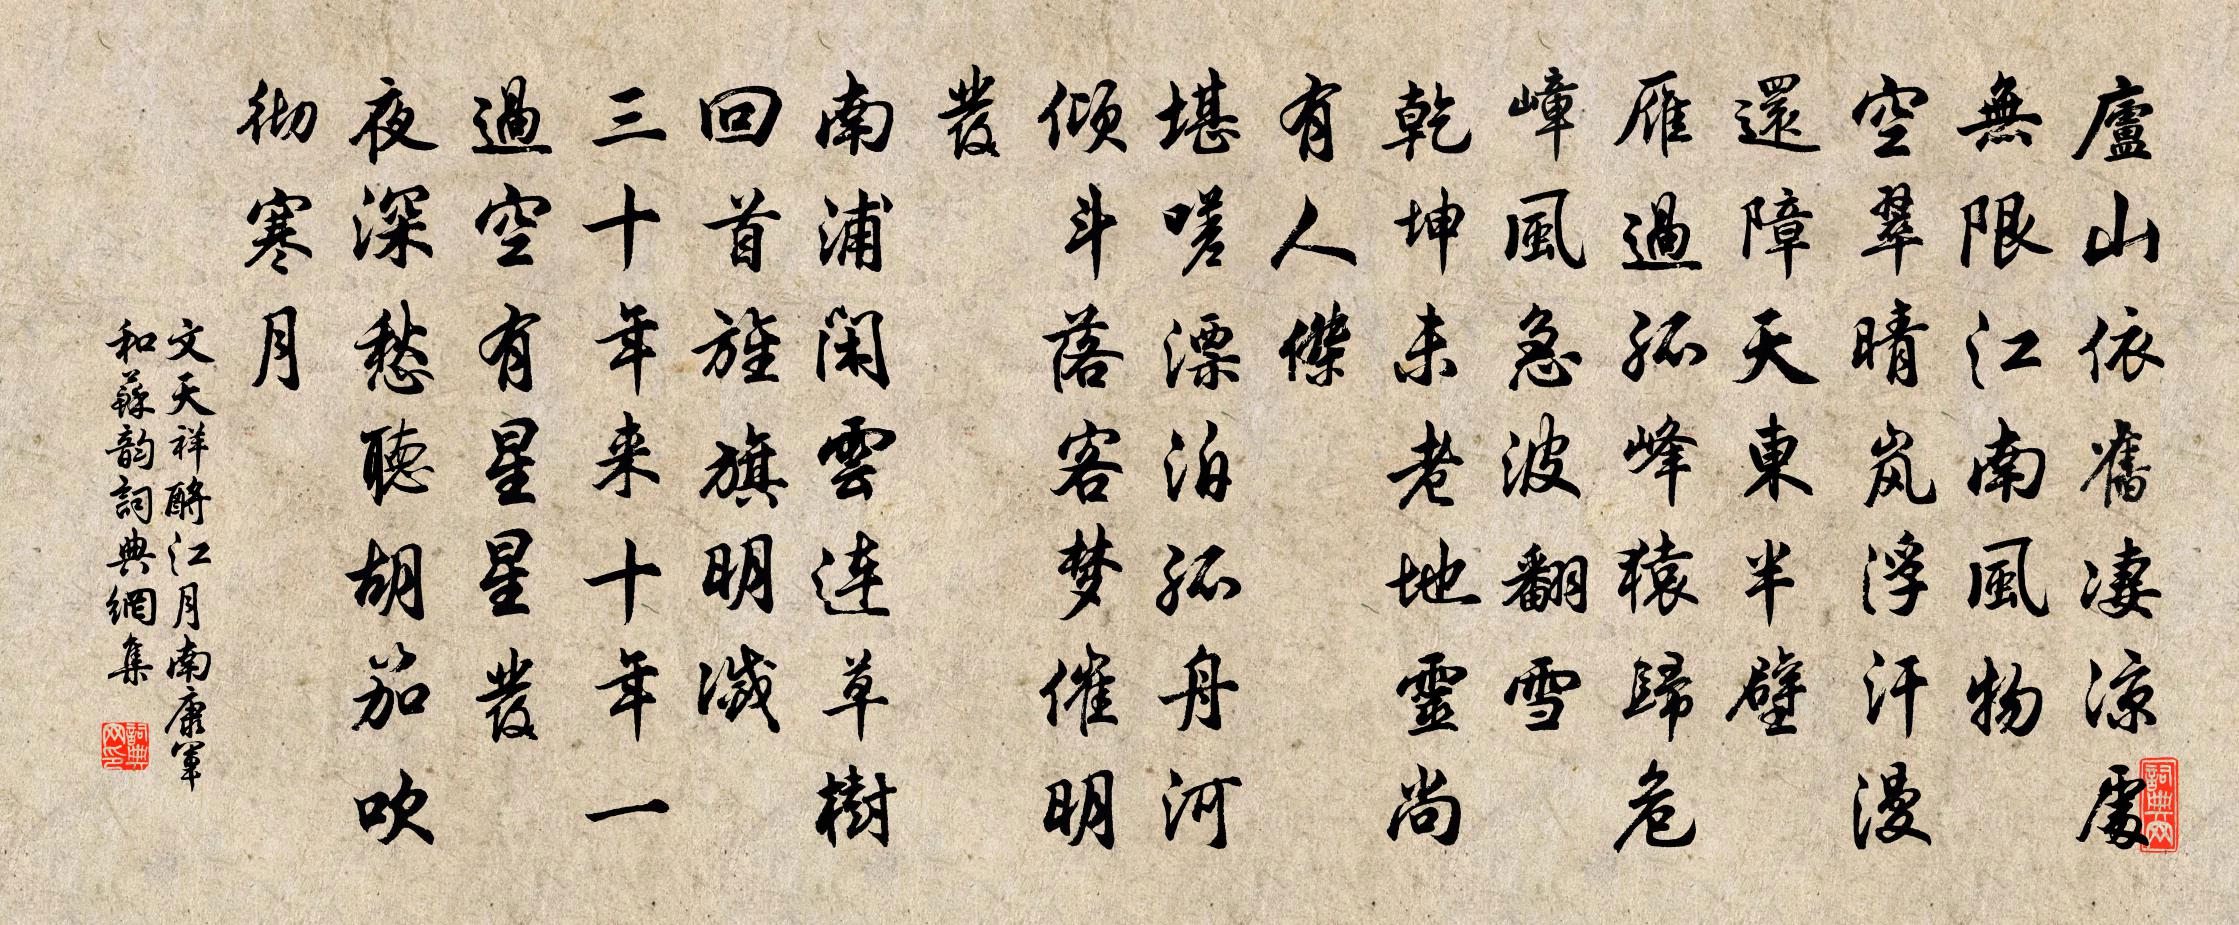 廬山依舊凄涼處
無限江南風物
空翠晴岚浮汗漫
還障天東半壁
雁過孤峰猿歸危
嶂風急波翻雪
乾坤未老地靈尚
有人傑
堪嗟漂泊孤舟河
傾斗落客梦催明
發
南浦閑雲连草樹
回首旌旗明滅
三十年来十年一
過空有星星發
夜深愁聽胡笳吹
彻寒月
文天祥酹江月南康軍
和蘇韵詞典網集
詞典网印
詞典网